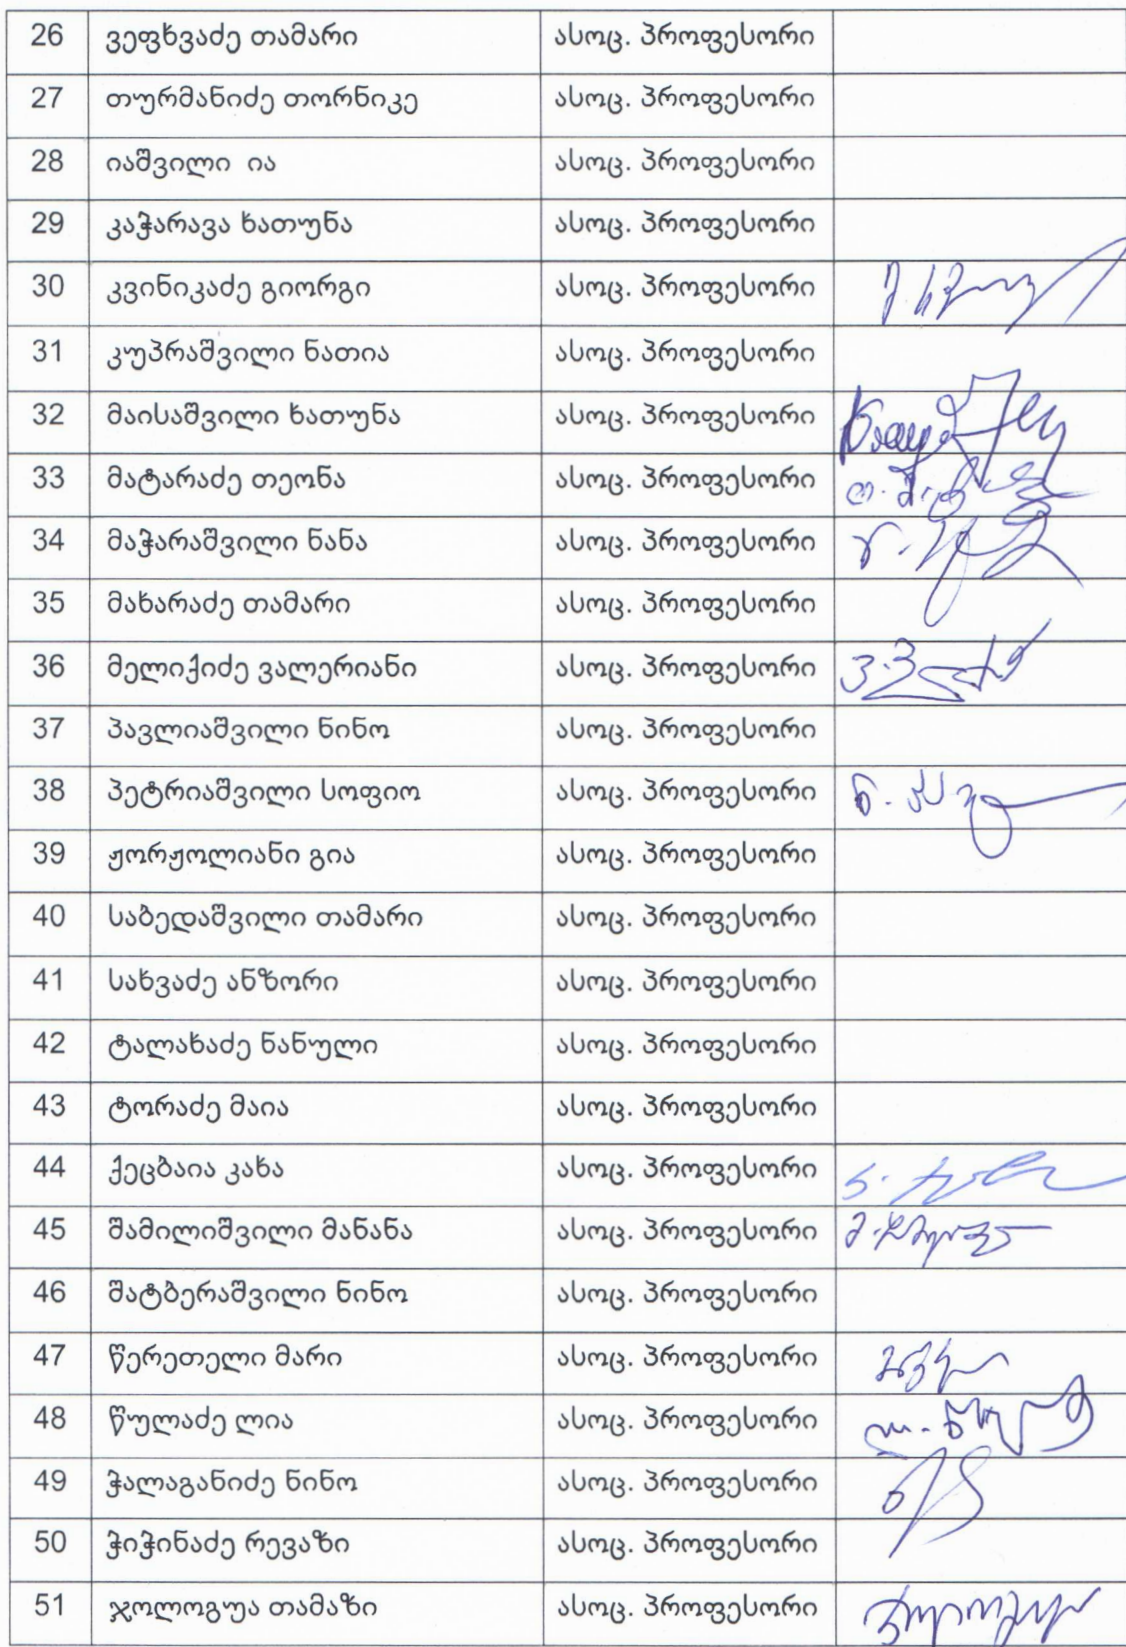 26 ვეფხვაძე თამარი ასოც. პროფესორი
27 თურმანიძე თორნიკე ასოც. პროფესორი
28 იაშვილი ია ასოც. პროფესორი
29 კაჭარავა ხათუნა ასოც. პროფესორი
30 კვინიკაძე გიორგი ასოც. პროფესორი
31 კუპრაშვილი ნათია ასოც. პროფესორი
32 მაისაშვილი ხათუნა ასოც. პროფესორი
33 მატარაძე თეონა ასოც. პროფესორი
34 მაჭარაშვილი ნანა ასოც. პროფესორი
35 მახარაძე თამარი ასოც. პროფესორი
36 მელიქიძე ვალერიანი ასოც. პროფესორი
37 პავლიაშვილი ნინო ასოც. პროფესორი
38 პეტრიაშვილი სოფიო ასოც. პროფესორი
39 ჟორჟოლიანი გია ასოც. პროფესორი
40 საბედაშვილი თამარი ასოც. პროფესორი
41 სახვაძე ანზორი ასოც. პროფესორი
42 ტალახაძე ნანული ასოც. პროფესორი
43 ტორაძე მაია ასოც. პროფესორი
44 ქეცბაია კახა ასოც. პროფესორი
45 შამილიშვილი მანანა ასოც. პროფესორი
46 შატბერაშვილი ნინო ასოც. პროფესორი
47 წერეთელი მარი ასოც. პროფესორი
48 წულაძე ლია ასოც. პროფესორი
49 ჭალაგანიძე ნინო ასოც. პროფესორი
50 ჭიჭინაძე რევაზი ასოც. პროფესორი
51 ჯოლოგუა თამაზი ასოც. პროფესორი